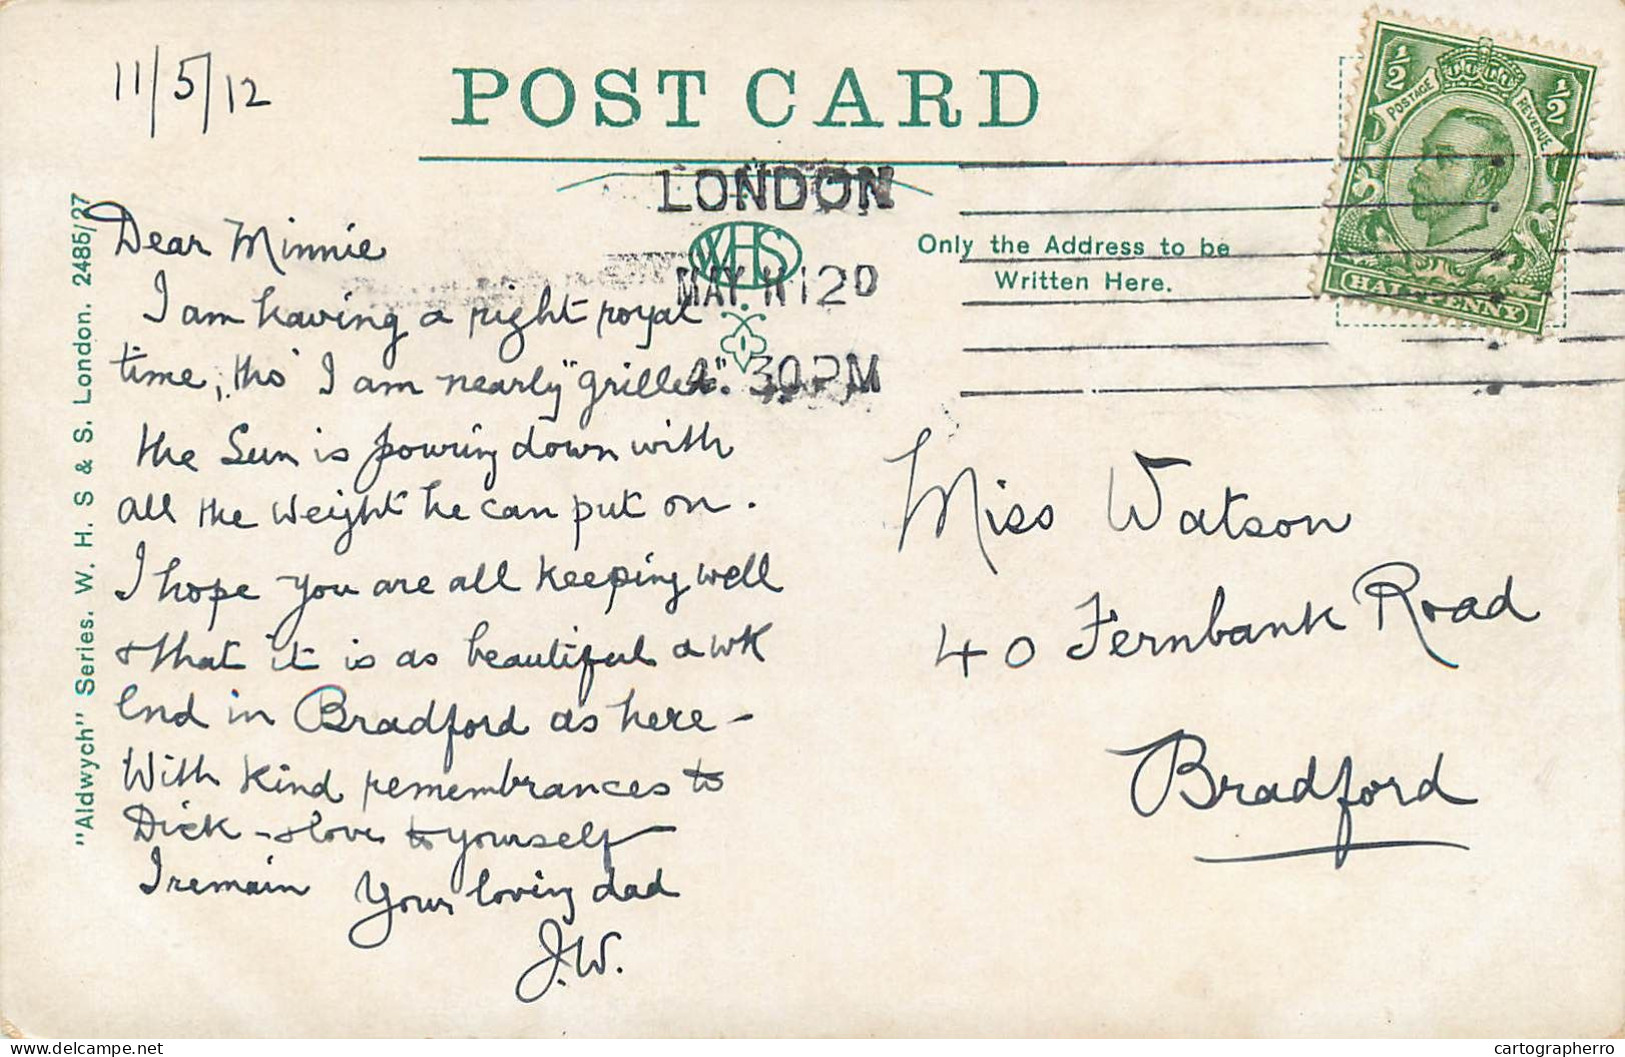 11/5/12
POST CARD
LONDON
MAY 11 12
4. 30 PM
WHS
½ ½
POSTAGE REVENUE
HALFPENNY
Only the Address to be
Written Here.
"Aldwych" Series. W. H. S & S. London. 2485/27
Dear Minnie
I am having a right royal
time, tho' I am nearly "grilled".
the Sun is pouring down with
all the weight he can put on.
I hope you are all keeping well
& that it is as beautiful a wk
end in Bradford as here –
With kind remembrances to
Dick – & love to yourself
I remain Your loving dad
J.W.
Miss Watson
40 Fernbank Road
Bradford
Delcampe.net
cartographerro